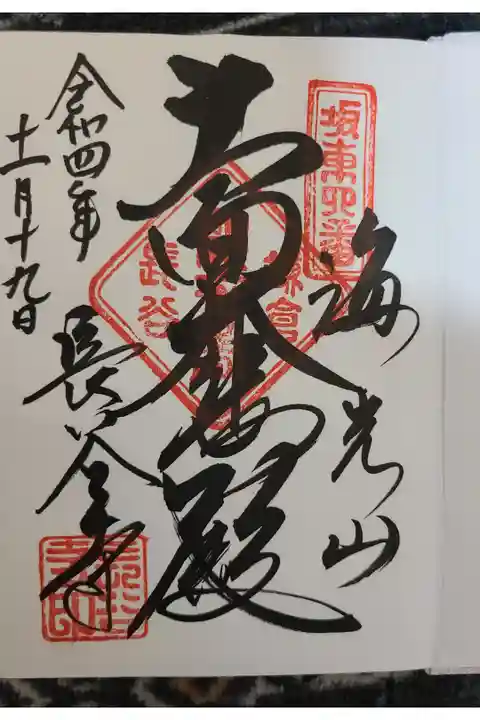 坂東四番
海光山
十一面大悲殿
鎌倉
長谷
長谷寺
令和四年
十一月十九日